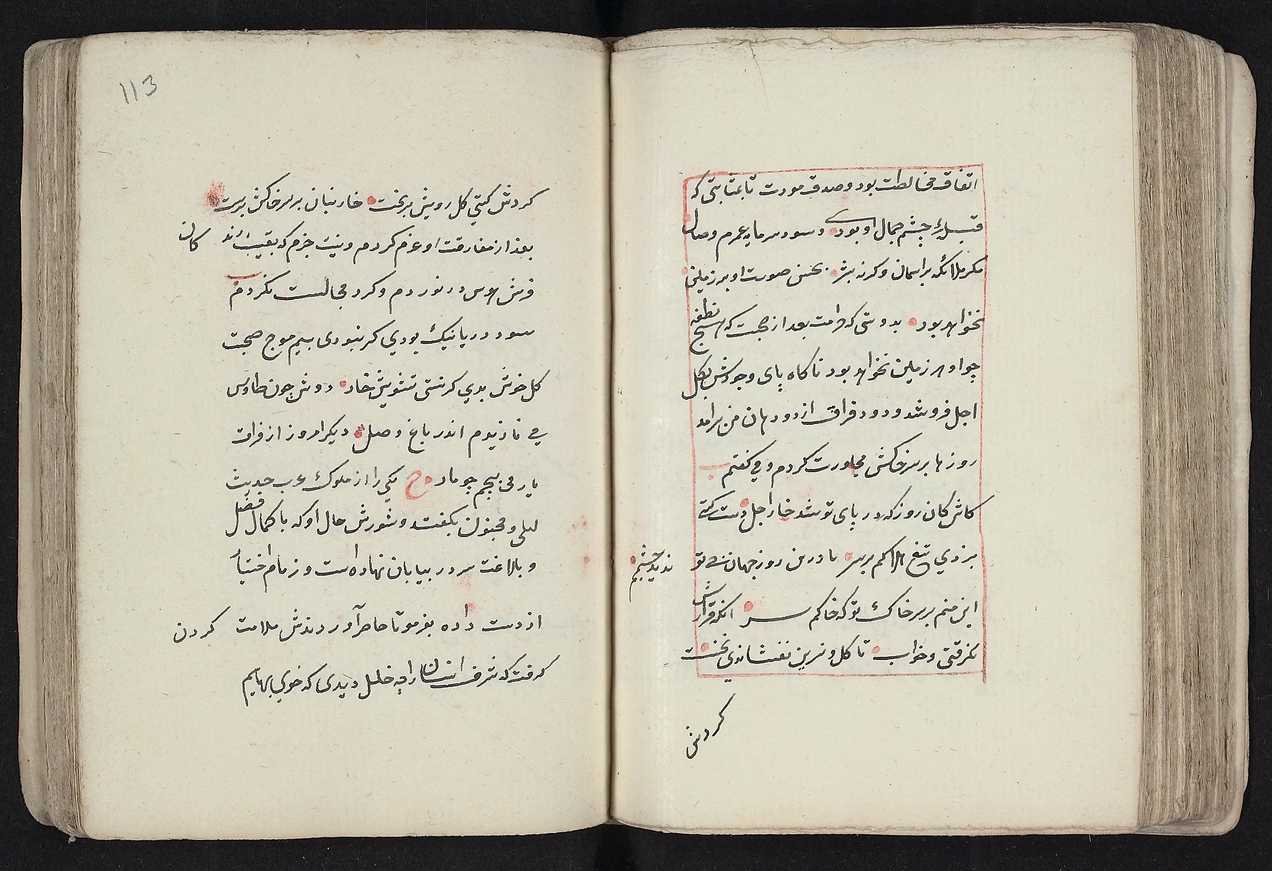 اتفاق مخالطت بود و صدق مودت تا بغایتی که
قبلهٔ چشم جمال او بودی و سود سرمایه عمرم وصال
مگر ملائکه بر آسمان وگرنه بشر بحسن صورت او بر زمین
نخواهد بود بدوستی که حرامست بعد از صحبت که هیچ نطفه
چو او در زمین نخواهد بود ناگاه پای وجودش بگل
اجل فرو شد و دود فراق از دودمان من برامد
روزها بر سر خاکش مجاورت کردم و می گفتم
کاش کان روز که در پای تو شد خار اجل دست گیتی
بزدی تیغ هلاکم بر سر تا درین روز جهان بی تو ندیدی چشمم
این منم بر سر خاک تو که خاکم سر انکه قرارش
نگرفتی و خواب تا گل و نسرین نفشاندی نخست
گردش
113
گردش گیتی گل رویش بریخت خاربنان بر سر خاکش برست
بعد از مفارقت او عزم کردم و نیت جزم که بقیت زند کان
فرش هوس در نوردم و گرد مجالست نگردم
سود دریا نیک بودی گر نبودی بیم موج صحبت
گل خوش بدی گر نیستی تشویش خار دوش چون طاوس
می نازیدم اندر باغ وصل دیگر امروز از فراق
یار می پیچم چو مار ح یکی را از ملوک عرب حدیث
لیلی و مجنون بگفتند و شورش حال او که با کمال فضل
و بلاغت سر در بیابان نهاده است و زمام اختیار
از دست داده بفرمود تا حاضر آوردندش ملامت کردن
گرفت که شرف انسان را چه خلل دیدی که خوی بهایم